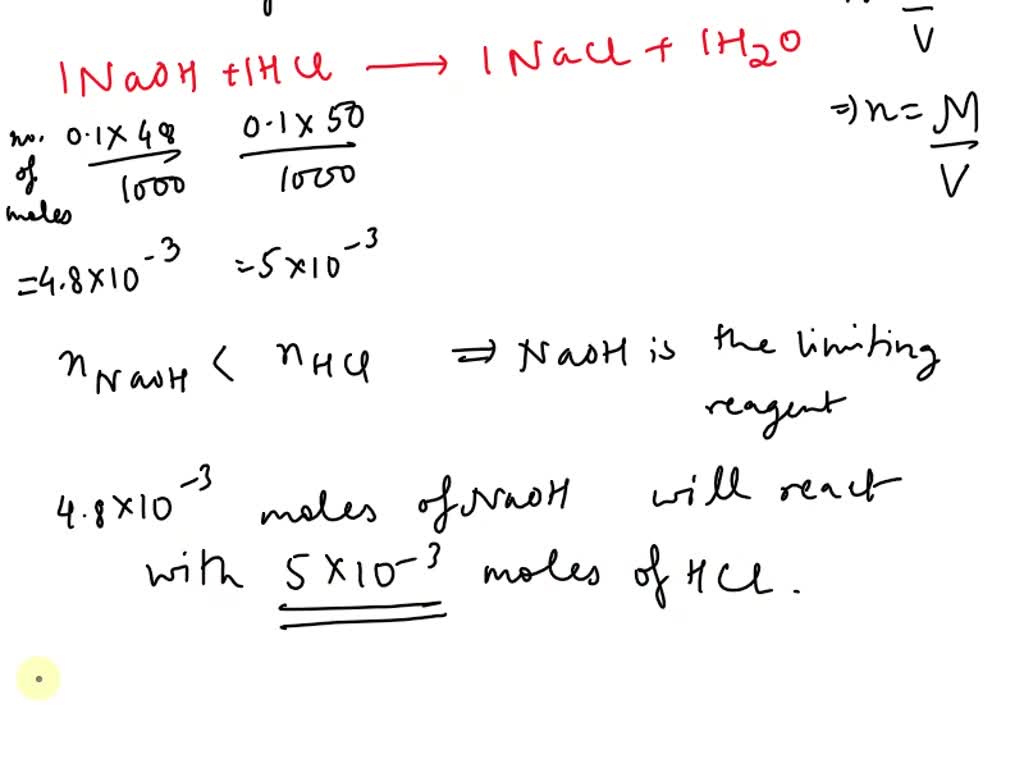 V
1 NaOH + 1HCl → 1 NaCl + 1H2O
no. of moles 0.1 × 48 / 1000 0.1 × 50 / 1000
⇒ n = M / V
= 4.8×10^-3 = 5×10^-3
n NaOH < n HCl ⇒ NaOH is the limiting
reagent
4.8×10^-3 moles of NaOH will react
with 5×10^-3 moles of HCl.